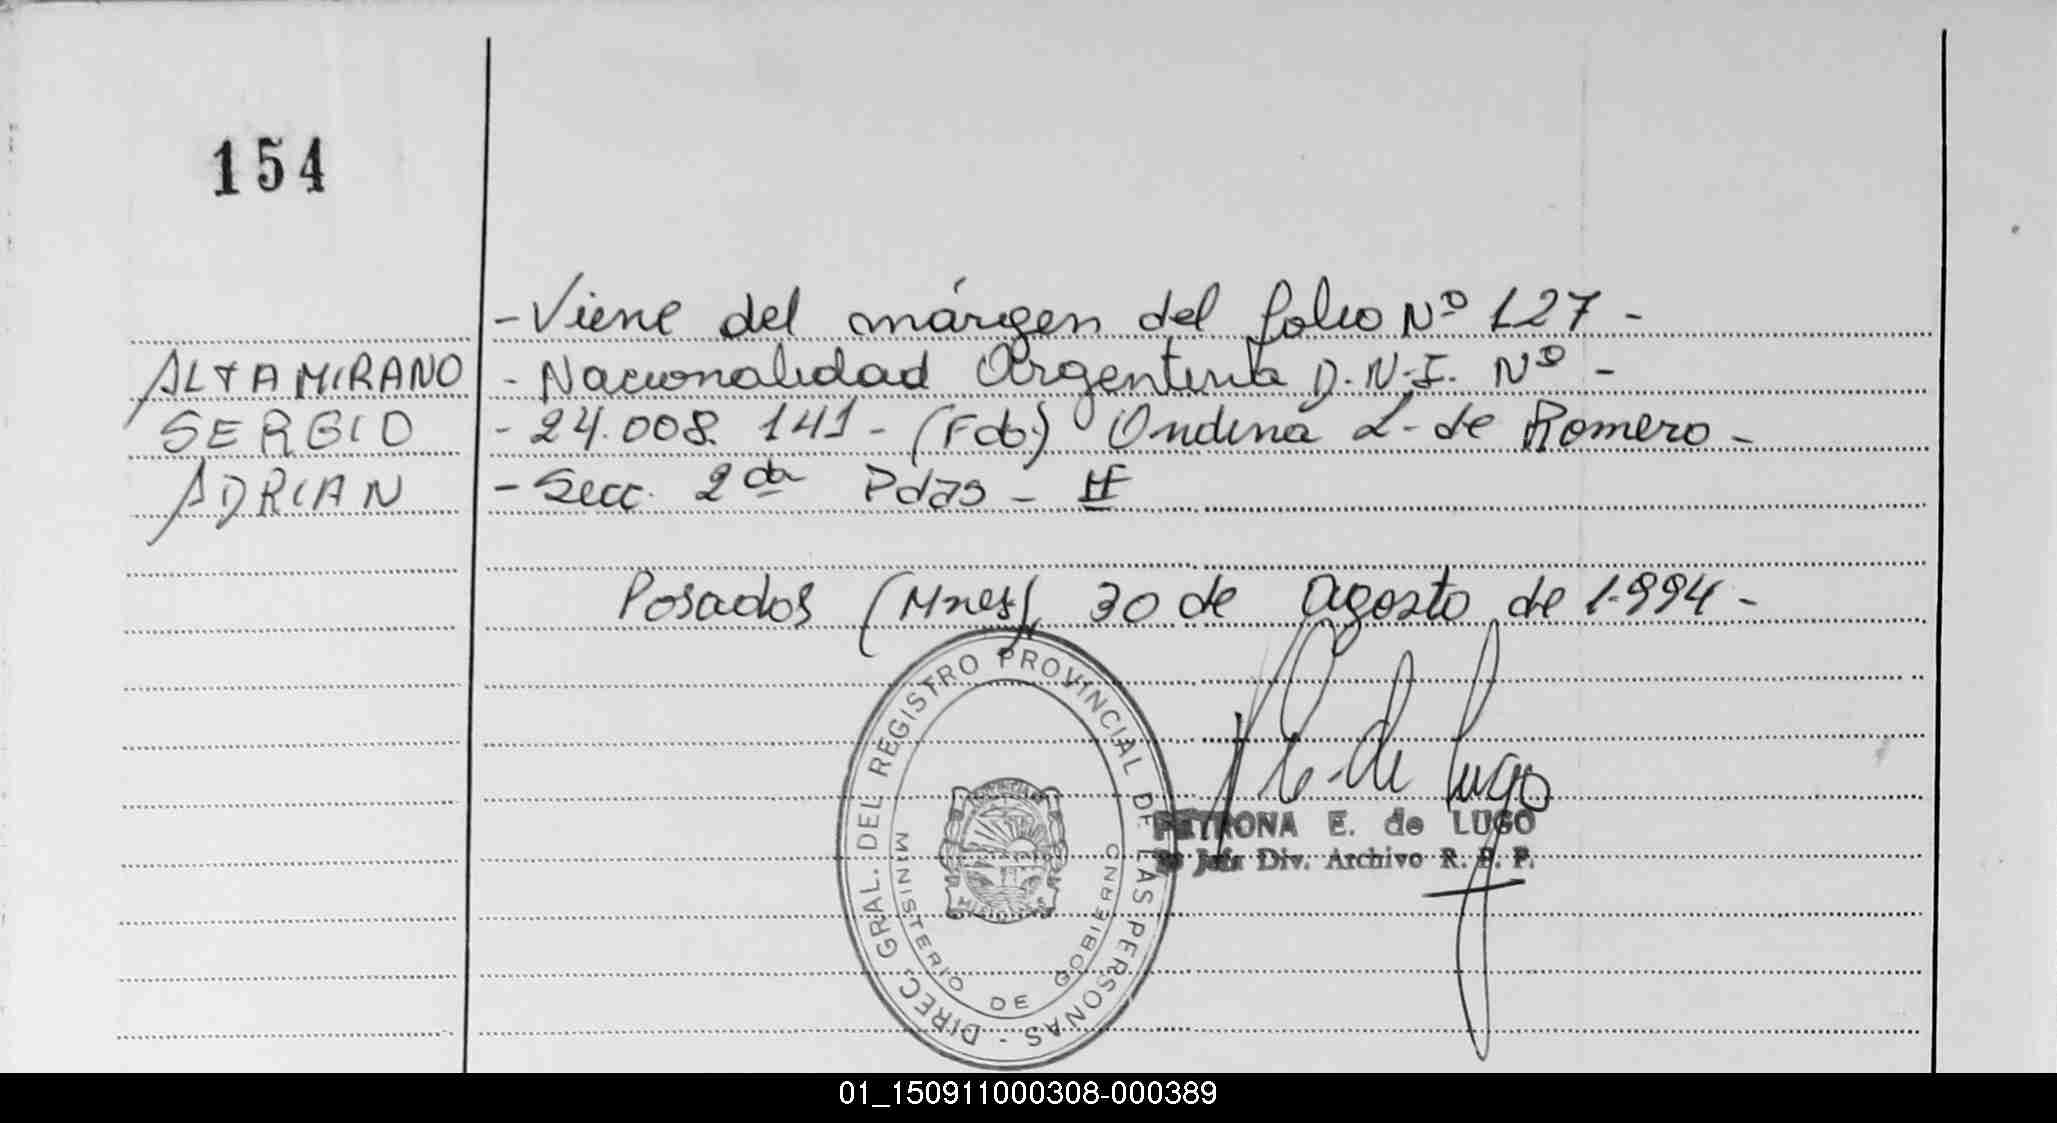 154
- Viene del márgen del folio Nº 127 -
ALTAMIRANO - Nacionalidad Argentina D.N.I. Nº -
SERGIO - 24.008.141 - (Fdo) Ondina L. de Romero -
ADRIAN - Secc. 2da Pdas -
Posadas (Mnes), 30 de Agosto de 1.994 -
DIREC. GRAL. DEL REGISTRO PROVINCIAL DE LAS PERSONAS -
MINISTERIO DE GOBIERNO
MISIONES
E. de Lugo
PETRONA E. de LUGO
Jefa Div. Archivo R. P. P.
01_150911000308-000389